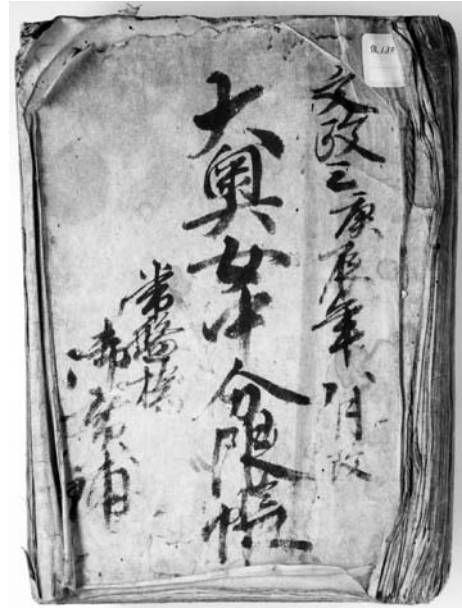 文政三庚辰年 八月改
大奥女中分限帳
常盤橋
御廣鋪